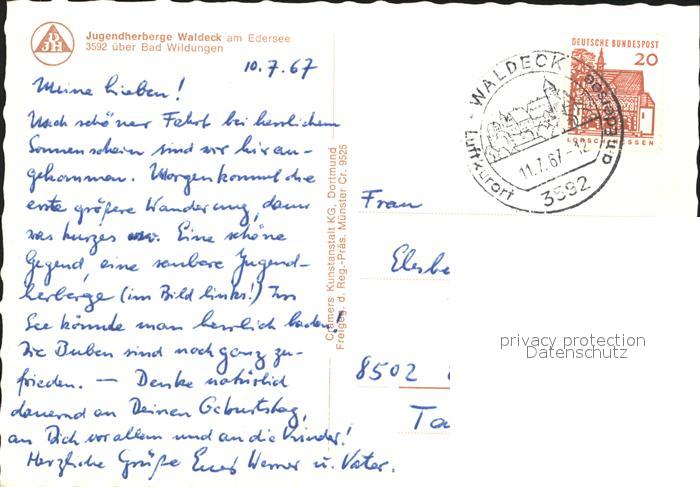 Jugendherberge Waldeck am Edersee
3592 über Bad Wildungen
10.7.67
Meine Lieben!
Nach schöner Fahrt bei herrlichem
Sonnenschein sind wir hier an-
gekommen. Morgen kommt die
erste größere Wanderung, dann
was kurzes usw. Eine schöne
Gegend, eine saubere Jugend-
herberge (im Bild links!) Im
See könnte man herrlich baden!
Die Buben sind noch ganz zu-
frieden. — Denke natürlich
dauernd an Deinen Geburtstag,
an Dich vor allem und an die Kinder!
Herzliche Grüße Euer Werner u. Vater.
Cramers Kunstanstalt KG, Dortmund
Freigeg. d. Reg.-Präs. Münster Cr. 9525
DEUTSCHE BUNDESPOST
20
LORSCH/HESSEN
WALDECK
Luftkurort
11.7.67-12
3592
Frau
Elsbe
8502
Ta
privacy protection
Datenschutz